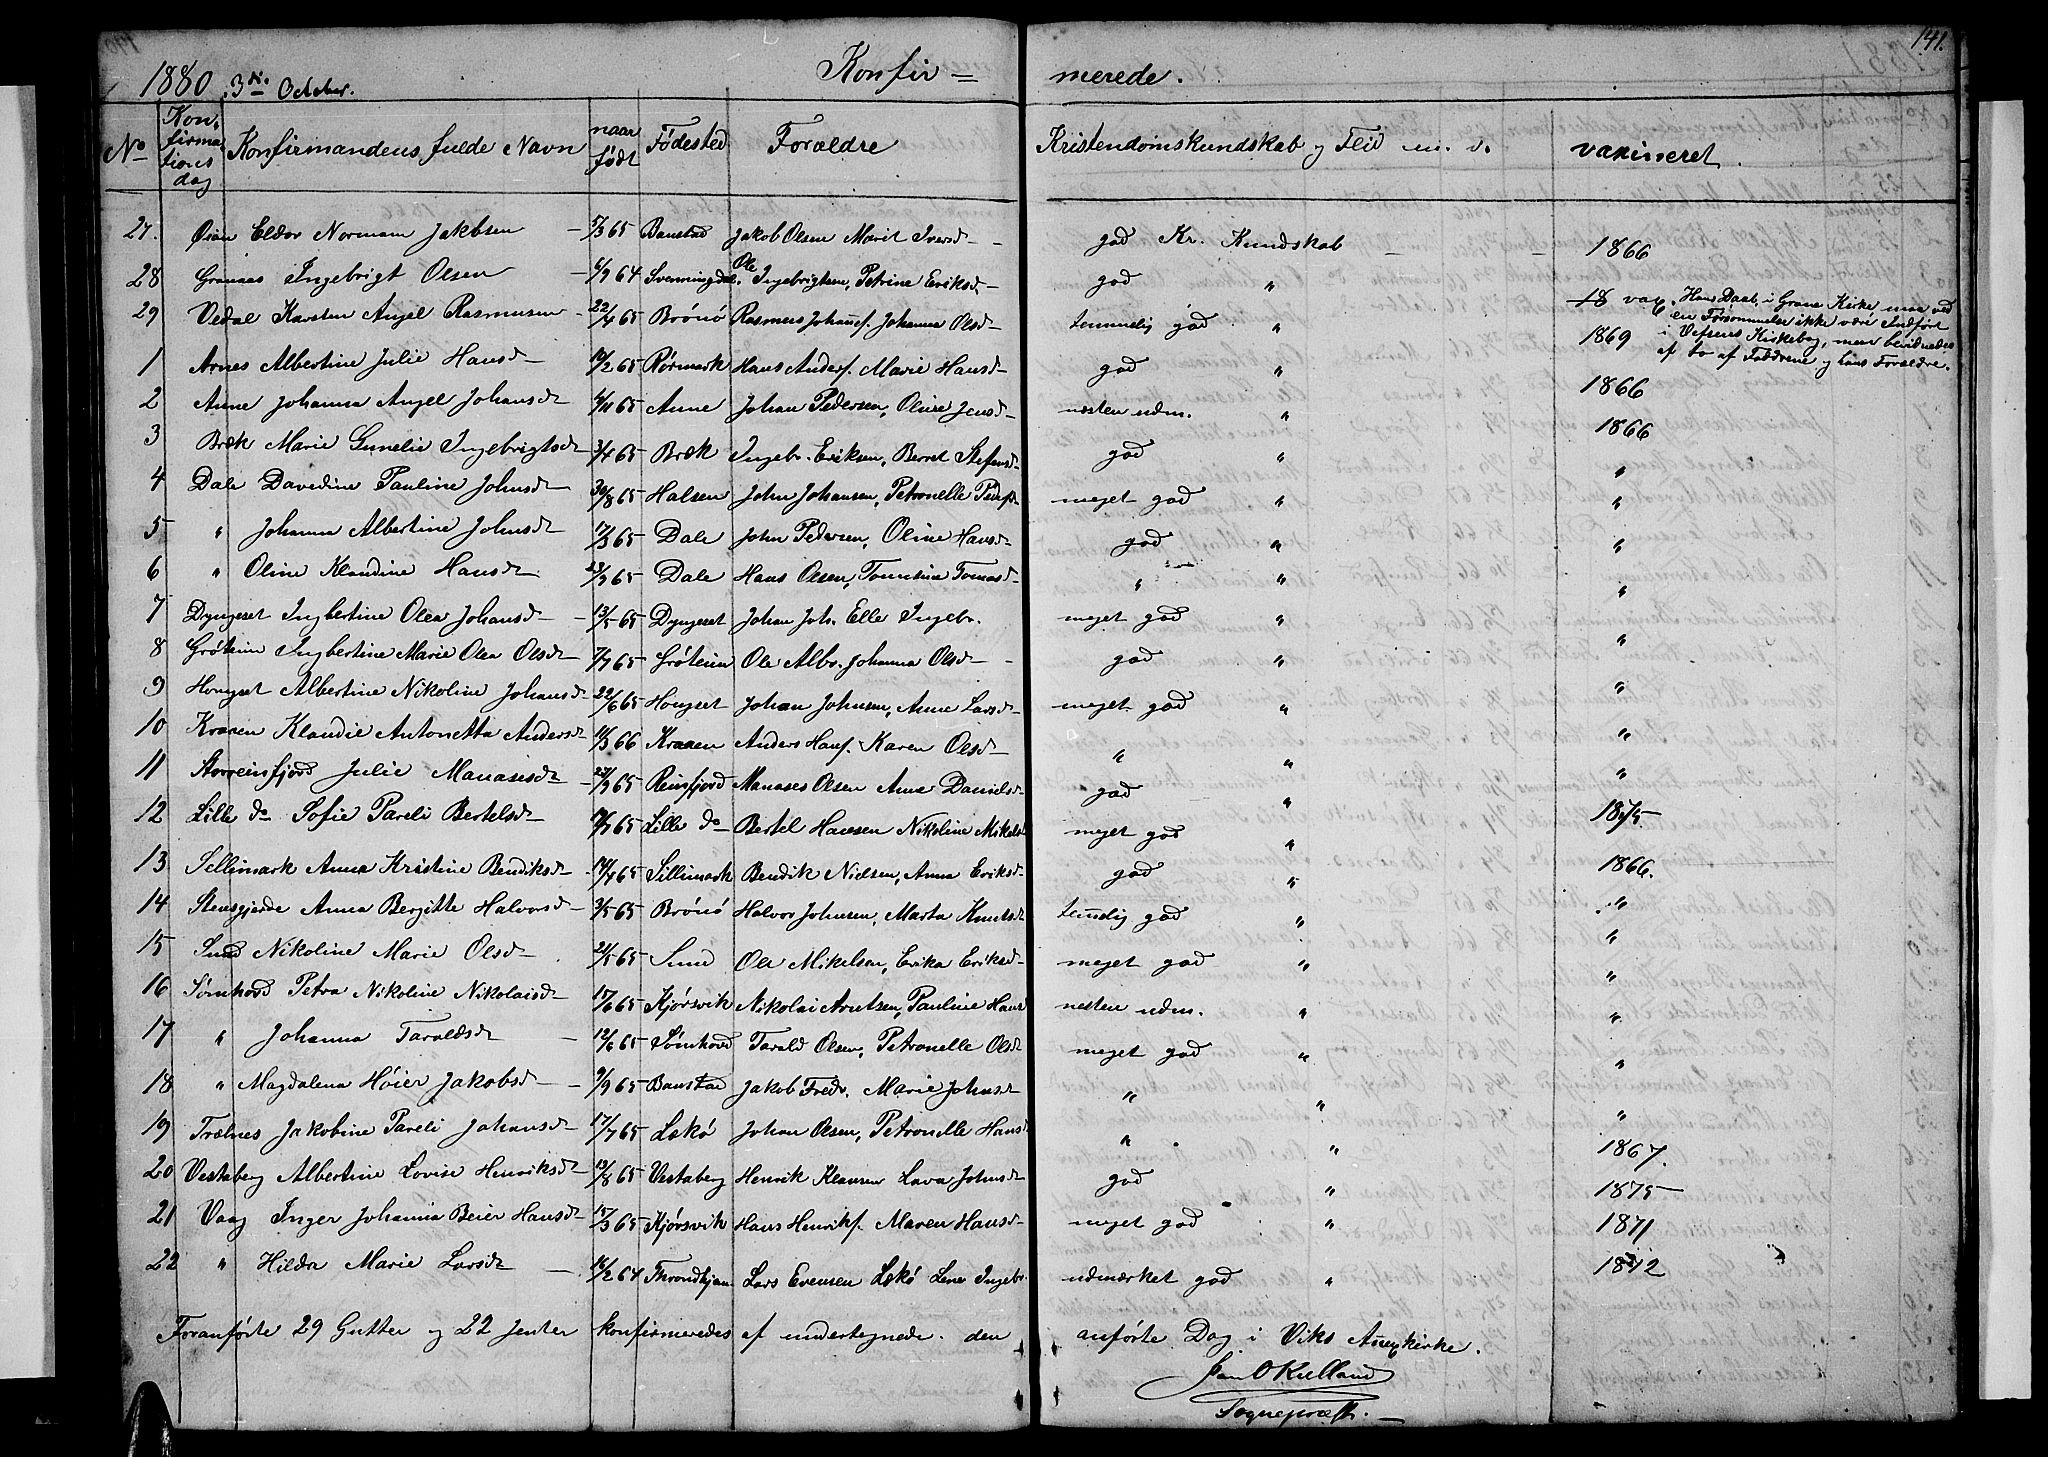 141.
1880 3die October. Konfir= merede.
No Konfirmationsdag Konfirmandens fulde Navn naar født Fødested Forældre Kristendomskundskab og Flid m. v. vaxineret.
27. Øian Eldor Normann Jakobsen - 5/3 65 Banstad Jakob Olsen Marit Iversd - god Kr. Kundskab - - 1866
28 Granaas Ingebrigt Olsen - 6/9 64 Svenningdal. Ole Ingebrigtsen, Petrine Eriksd - god "
29 Vedal Karsten Angel Rasmusen - 22/4 65 Brønø Rasmus Johansf. Johanna Olsd - temmelig god " 1869
18 vax. Hans Daab i Grane Kirke maa ved
en Forsømmelse ikke være Indført
i Vefsens Kirkebog, men bevidnedes
af to af Fadderne og hans Forældre.
1 Arnes Albertine Julie Hansd - 10/2 65 Rørmark Hans Andersf. Marie Hansd - god " 1866
2 Aune Johanna Angel Johansd 4/11 65 Aune Johan Pedersen, Oline Jensd - næsten udm. " 1866
3 Bræk Marie Gunelie Ingebrigtsd 3/4 65 Bræk Ingebr. Eriksen, Berret Stefansd - god " "
4 Dale Davedine Pauline Johnsd 30/8 65 Halsen John Johansen, Petronelle Pedersd meget god " "
5 " Johanna Albertine Johnsd 17/3 65 Dale John Pedersen, Oline Hansd - god " "
6 " Oline Klaudine Hansd 23/9 65 Dale Hans Olsen, Tomine Tomasd - " " "
7 Dyngeset Ingbertine Olea Johansd - 13/5 65 Dyngeset Johan Joh. Elle Ingebr. meget god " "
8 Grøteim Ingbertine Marie Olea Olsd - 7/7 65 Grøteim Ole Albr. Johanna Olsd - god " "
9 Hongset Albertine Nikoline Johansd - 22/6 65 Hongset Johan Johnsen, Anne Larsd - meget god " "
10 Kraaen Klaudie Antonetta Andersd 11/3 66 Kraaen Anders Hansf. Karen Olsd - " " "
11 Storreinfjord Julie Manasisd - 27/9 65 Reinfjord Manases Olsen Anne Danielsd - god "
12 Lille do Sofie Pareli Bertelsd - 10/7 65 Lille do Bertel Hansen Nikoline Mikelsd meget god " 1875.
13 Sellimark Anna Kristine Bendiksd - 14/4 65 Sillimark Bendik Nielsen, Anna Eriksd - god " 1866.
14 Stensgjerde Anna Bergitte Halvorsd - 3/5 65 Brønø Halvor Johnsen, Marta Knutsd temelig god " "
15 Sund Nikoline Marie Olsd - 21/5 65 Sund Ole Mikelsen, Erika Eriksd - meget god " "
16 Sømhovd Petra Nikoline Nikolaisd - 15/6 65 Kjørsvik Nikolai Arntsen, Pauline Hans nesten udm. " "
17 " Johanna Taraldsd - 12/6 65 Sømhovd Tarald Olsen, Petronelle Olsd meget god " "
18 " Magdalena Høier Jakobsd - 9/9 65 Banstad Jakob Fredr. Marie Johnsd " " "
19 Trælnes Jakobine Pareli Johansd - 17/7 65 Lekø Johan Olsen, Petronelle Hans " " "
20 Vestaberg Albertine Lovise Henriksd - 13/8 65 Vestaberg Henrik Klausen Lava Johnsd god " 1867.
21 Vaag Inger Johanna Beier Hansd - 15/3 65 Kjørsvik Hans Henrikf. Maren Hansd - meget god " 1875
1871
22 " Hilda Marie Larsd - 16/2 64 Throndhjem Lars Evensen Lekø Lene Ingebr. udmærket god " 1872
Foranførte 29 Gutter og 22 Jenter konfirmeredes af undertegnede den anførte Dag i Viks Annexkirke.
Jan O Kielland
Sognepræst. -